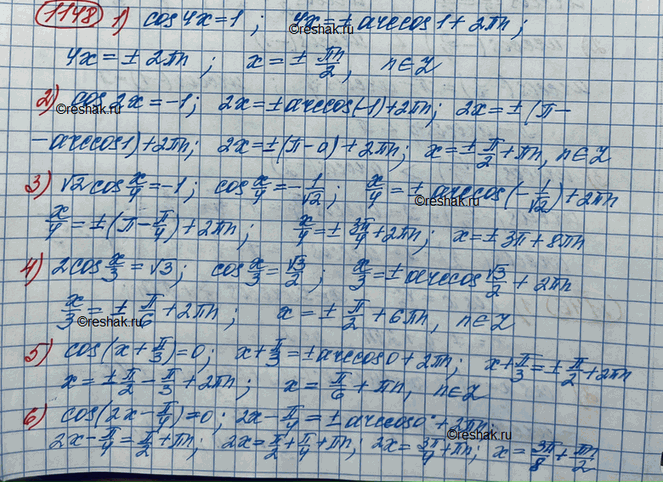 1148 1) cos 4x = 1 ; 4x = ± arccos 1 + 2πn ;
4x = ± 2πn ; x = ± πn/2 , n ∈ Z
2) cos 2x = -1 ; 2x = ± arccos(-1) + 2πn ; 2x = ± (π -
©reshak.ru
- arccos 1) + 2πn ; 2x = ± (π - 0) + 2πn ; x = ± π/2 + πn, n ∈ Z
3) √2 cos x/4 = -1 ; cos x/4 = - 1/√2 ; x/4 = ± arccos(- 1/√2) + 2πn
©reshak.ru
x/4 = ± (π - π/4) + 2πn ; x/4 = ± 3π/4 + 2πn ; x = ± 3π + 8πn
4) 2 cos x/3 = √3 ; cos x/3 = √3/2 ; x/3 = ± arccos √3/2 + 2πn
x/3 = ± π/6 + 2πn ; x = ± π/2 + 6πn , n ∈ Z
©reshak.ru
5) cos(x + π/3) = 0 ; x + π/3 = ± arccos 0 + 2πn ; x + π/3 = ± π/2 + 2πn
x = ± π/2 - π/3 + 2πn ; x = π/6 + πn , n ∈ Z
6) cos(2x - π/4) = 0 ; 2x - π/4 = ± arccos 0 + 2πn
©reshak.ru
2x - π/4 = π/2 + πn ; 2x = π/2 + π/4 + πn ; 2x = 3π/4 + πn ; x = 3π/8 + πn/2